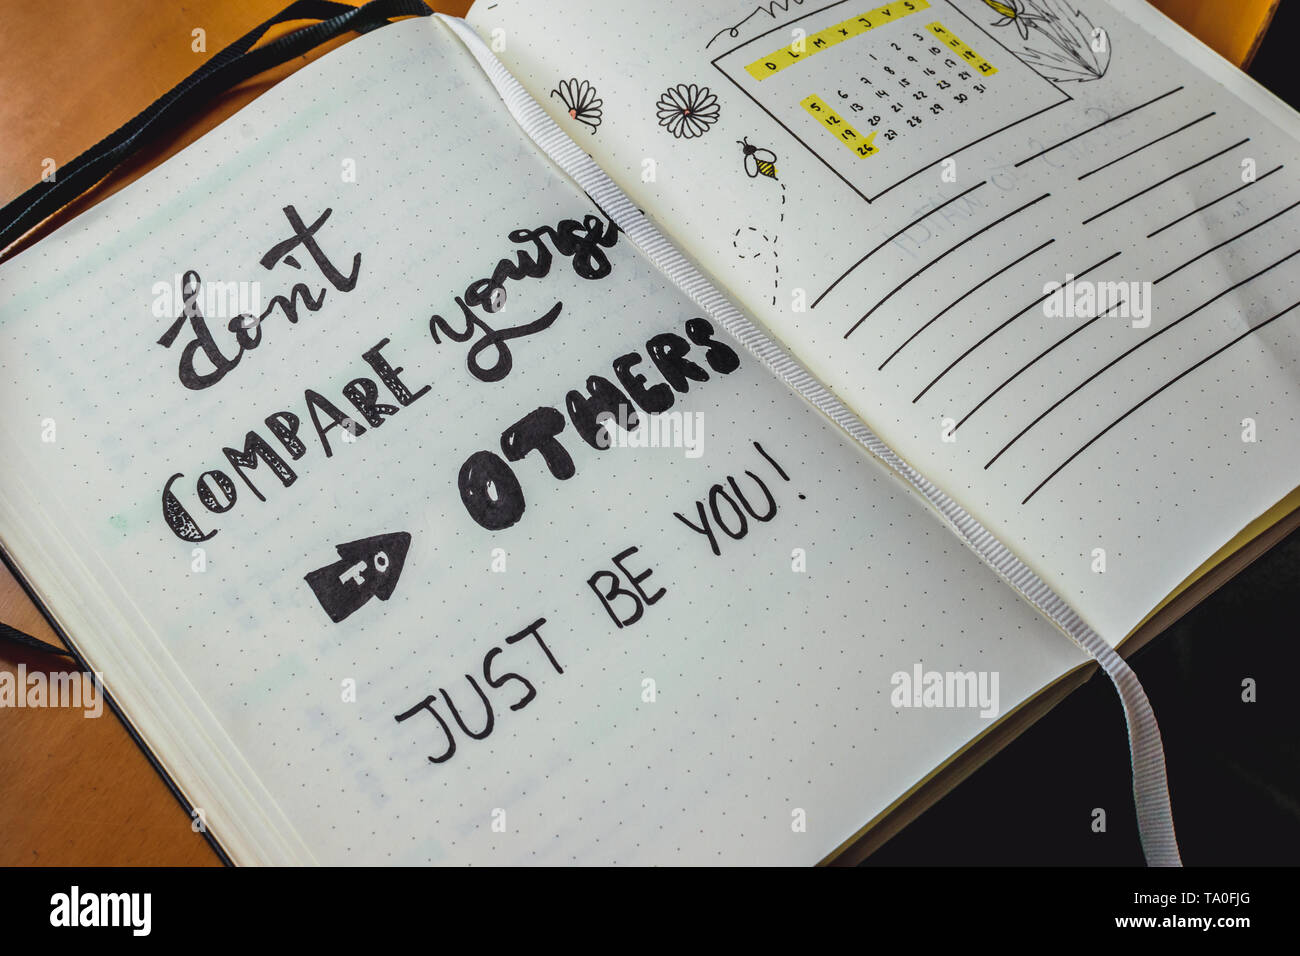 don't
COMPARE yoursel
TO OTHERS
JUST BE YOU!
D L M X J V S
1 2 3 4
5 6 7 8 9 10 11
12 13 14 15 16 17 18
19 20 21 22 23 24 25
26 27 28 29 30 31
alamy
Image ID: TA0FJG
www.alamy.com